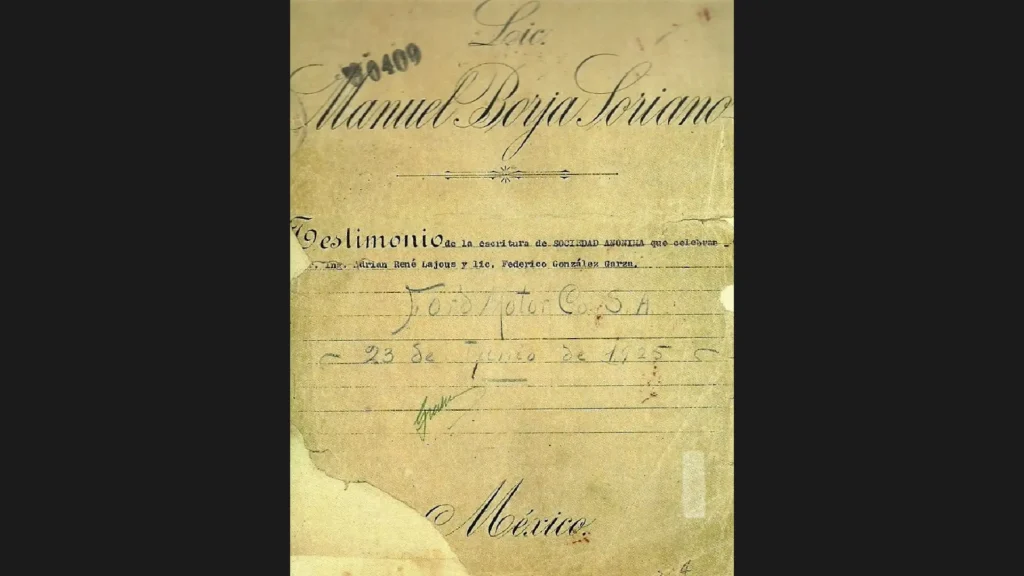 Lic.
30409
Manuel Borja Soriano
Testimonio de la escritura de SOCIEDAD ANONIMA que celebran
Ing. Adrian René Lajous y lic. Federico González Garza.
Ford Motor Co. S. A.
23 de Junio de 1925
México.
4